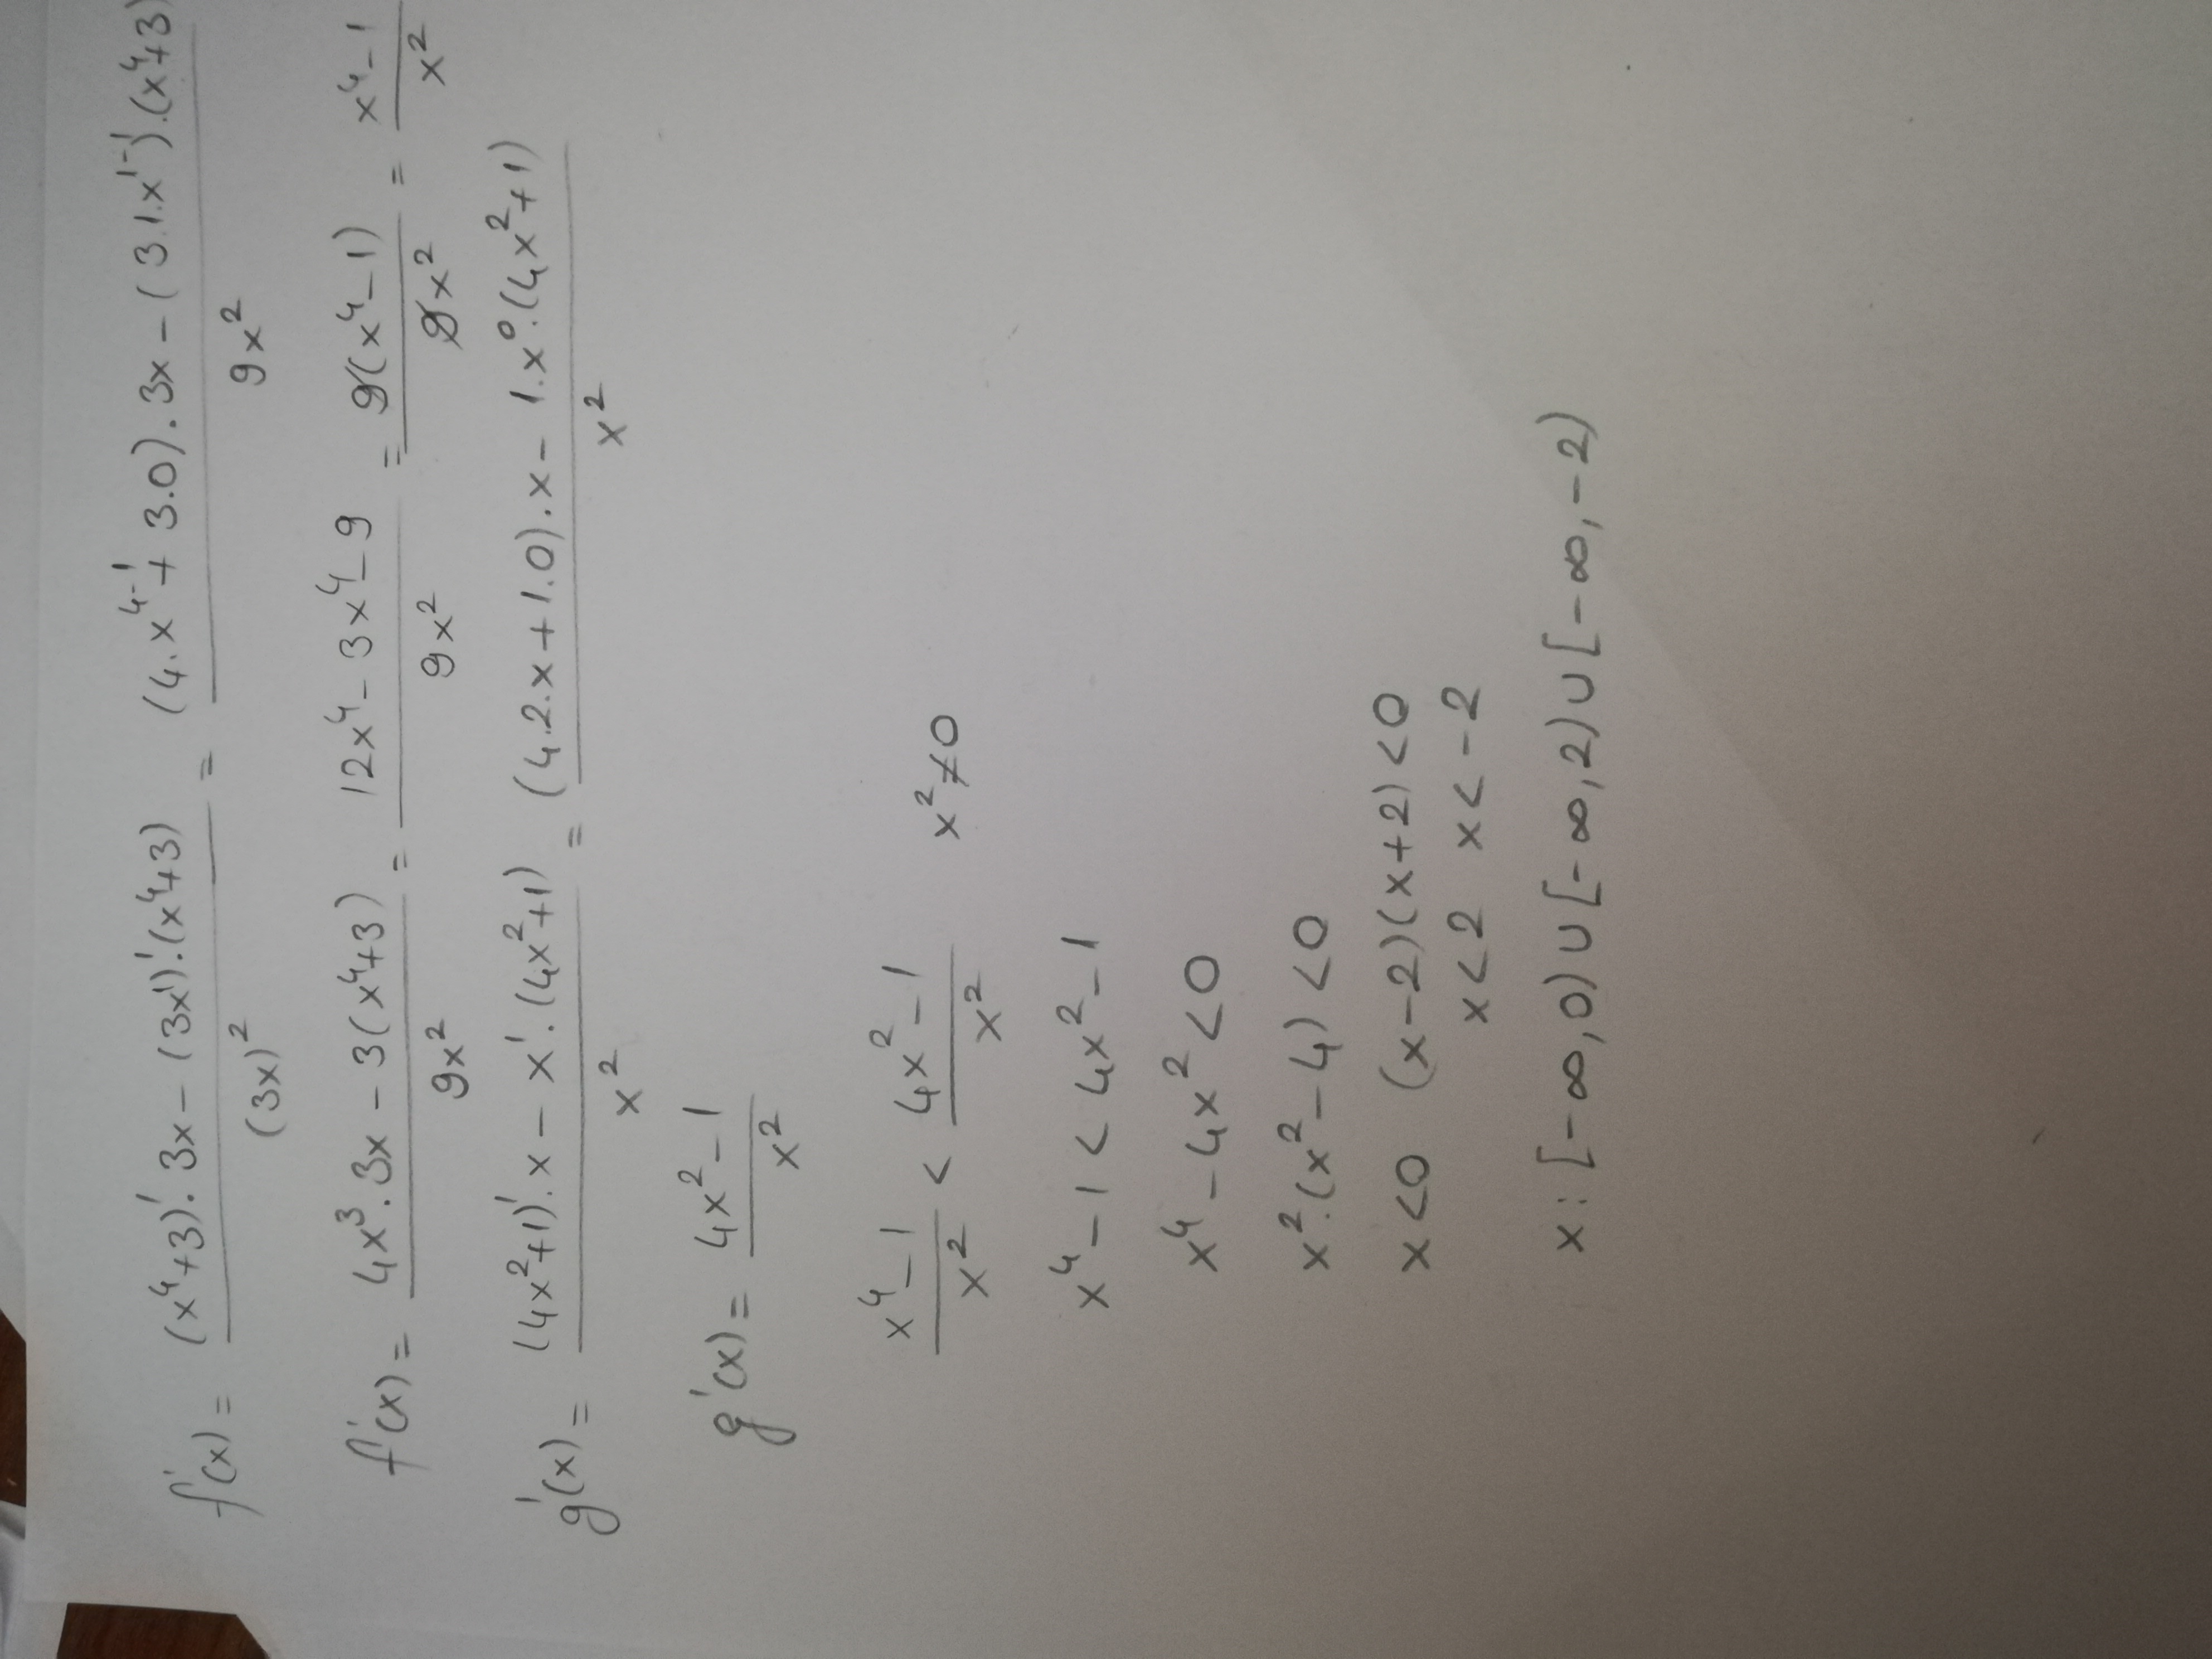 f'(x) = (x⁴+3)'.3x - (3x¹)'.(x⁴+3) / (3x)² = (4.x⁴⁻¹ + 3.0).3x - (3.1.x¹⁻¹).(x⁴+3) / 9x²
f'(x) = 4x³.3x - 3(x⁴+3) / 9x² = 12x⁴ - 3x⁴ - 9 / 9x² = 9(x⁴-1) / 9x² = x⁴-1 / x²
g'(x) = (4x²+1)'.x - x'.(4x²+1) / x² = (4.2.x+1.0).x - 1.x⁰.(4x²+1) / x²
g'(x) = 4x²-1 / x²
x⁴-1 / x² < 4x²-1 / x² x² ≠ 0
x⁴-1 < 4x²-1
x⁴-4x² < 0
x².(x²-4) < 0
x<0 (x-2)(x+2)<0
x<2 x<-2
x: [-∞,0) ∪ [-∞,2) ∪ [-∞,-2)